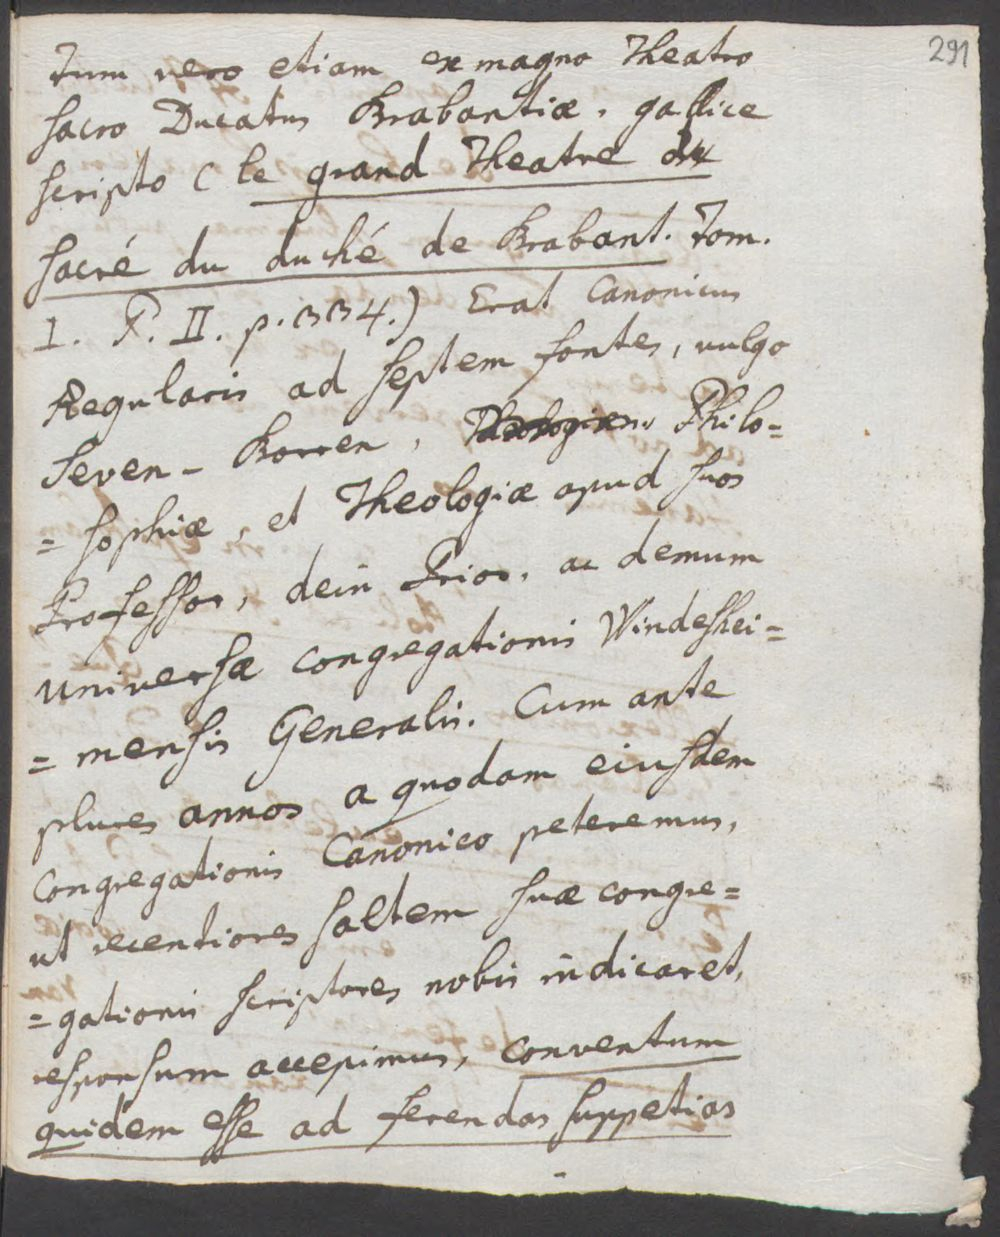 291
tum vero etiam ex magno Theatro
sacro Ducatus Brabantiæ, gallice
scripto ( le grand Theatre
sacré du duché de Brabant. Tom.
I. P. II. p. 334.) Erat Canonicus
Regularis ad septem fontes, vulgo
Seven-Borren, Philo=
=sophiæ, et Theologiæ apud suos
Professor, dein Prior, ac demum
universæ congregationis Windeshei=
=mensis Generalis. Cum ante
plures annos a quodam eiusdem
Congregationis Canonico peteremus,
ut recentiores saltem suæ congre=
=gationis scriptores nobis indicaret,
responsum accepimus, conventum
quidem esse ad ferendas suppetias